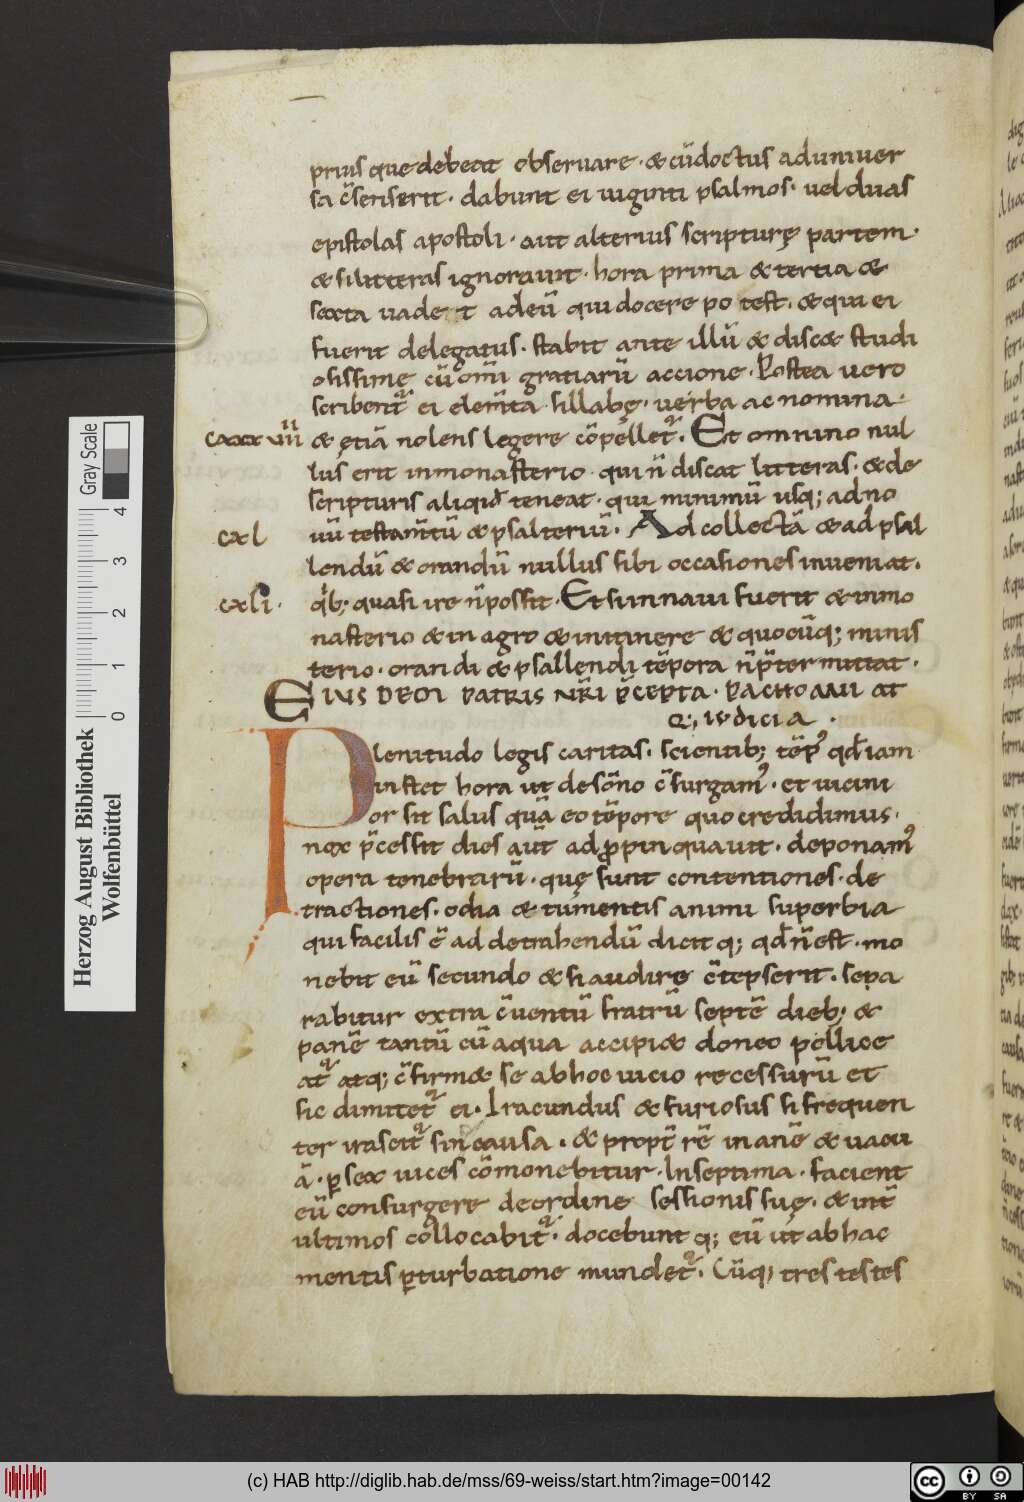 prius que debeat obseruare · & cū doctus ad uniuer
sa c̄senserit · dabunt ei uiginti psalmos · uel duas
epistolas apostoli · aut alterius scripturę partem ·
& si litteras ignorauit · hora prima & tertia &
sexta uade t ad eū qui docere po test · & qui ei
fuerit delegatus · stabit ante illū & disc& studi
osissime cū om̄i gratiarū accione · Postea uero
scribent̄ ei elem̄ta sillabę · uerba ac nomina ·
cxxxviiii & ętiā nolens legere cōpellet̄ · Et omnino nul
lus erit in monasterio qui n̄ discat litteras · & de
scripturis aliquid teneat · qui minimū usq; ad no
cxl uū testam̄tū & psalteriū · Ad collectā & ad psal
lendū & orandū nullus sibi occasiones inueniat ·
cxli · q̄b; quasi ire n̄ possit · Et si in naui fuerit & in mo
nasterio & in agro & in itinere & quocūq; minis
terio · orandi & psallendi tēpora n̄ p̄termittat ·
EIUSDEM PATRIS NR̄I P̄CEPTA · PACHOMII AT
Q; IUDICIA ·
Plenitudo legis caritas · scientib; tēp' qd̄ iam
instet hora ut de sōno c̄surgam' · et uicini
or sit salus quā eo tēpore quo credidimus ·
nox p̄cessit dies aūt adpropinquauit · deponam'
opera tenebrarū · quę sunt contentiones · de
tractiones · odia & tumentis animi superbia
qui facilis ē ad detrahendū dicit q; qd̄ n̄ est · mo
nebit eū secundo & si audire c̄tēpserit · sepa
rabitur extra c̄uentū fratrū septē dieb; &
panē tantū cū aqua accipi& donec pollice
at̄ atq; c̄firm& se ab hoc uicio recessurū et
sic dimitet̄ ei · Iracundus & furiosus si frequen
ter irascit̄ sin causa · & propt̄ rē inanē & uacu
ā · p̱ sex uices cōmonebitur · In septima · facient
eū consurgere de ordine sessionis suę · & int̄
ultimos collocabit̄ · docebunt q; eū ut ab hac
mentis p̱turbatione mundet̄ · Cūq; tres testes
Herzog August Bibliothek
Wolfenbüttel
Gray Scale
0 1 2 3 4
(c) HAB http://diglib.hab.de/mss/69-weiss/start.htm?image=00142
cc BY SA